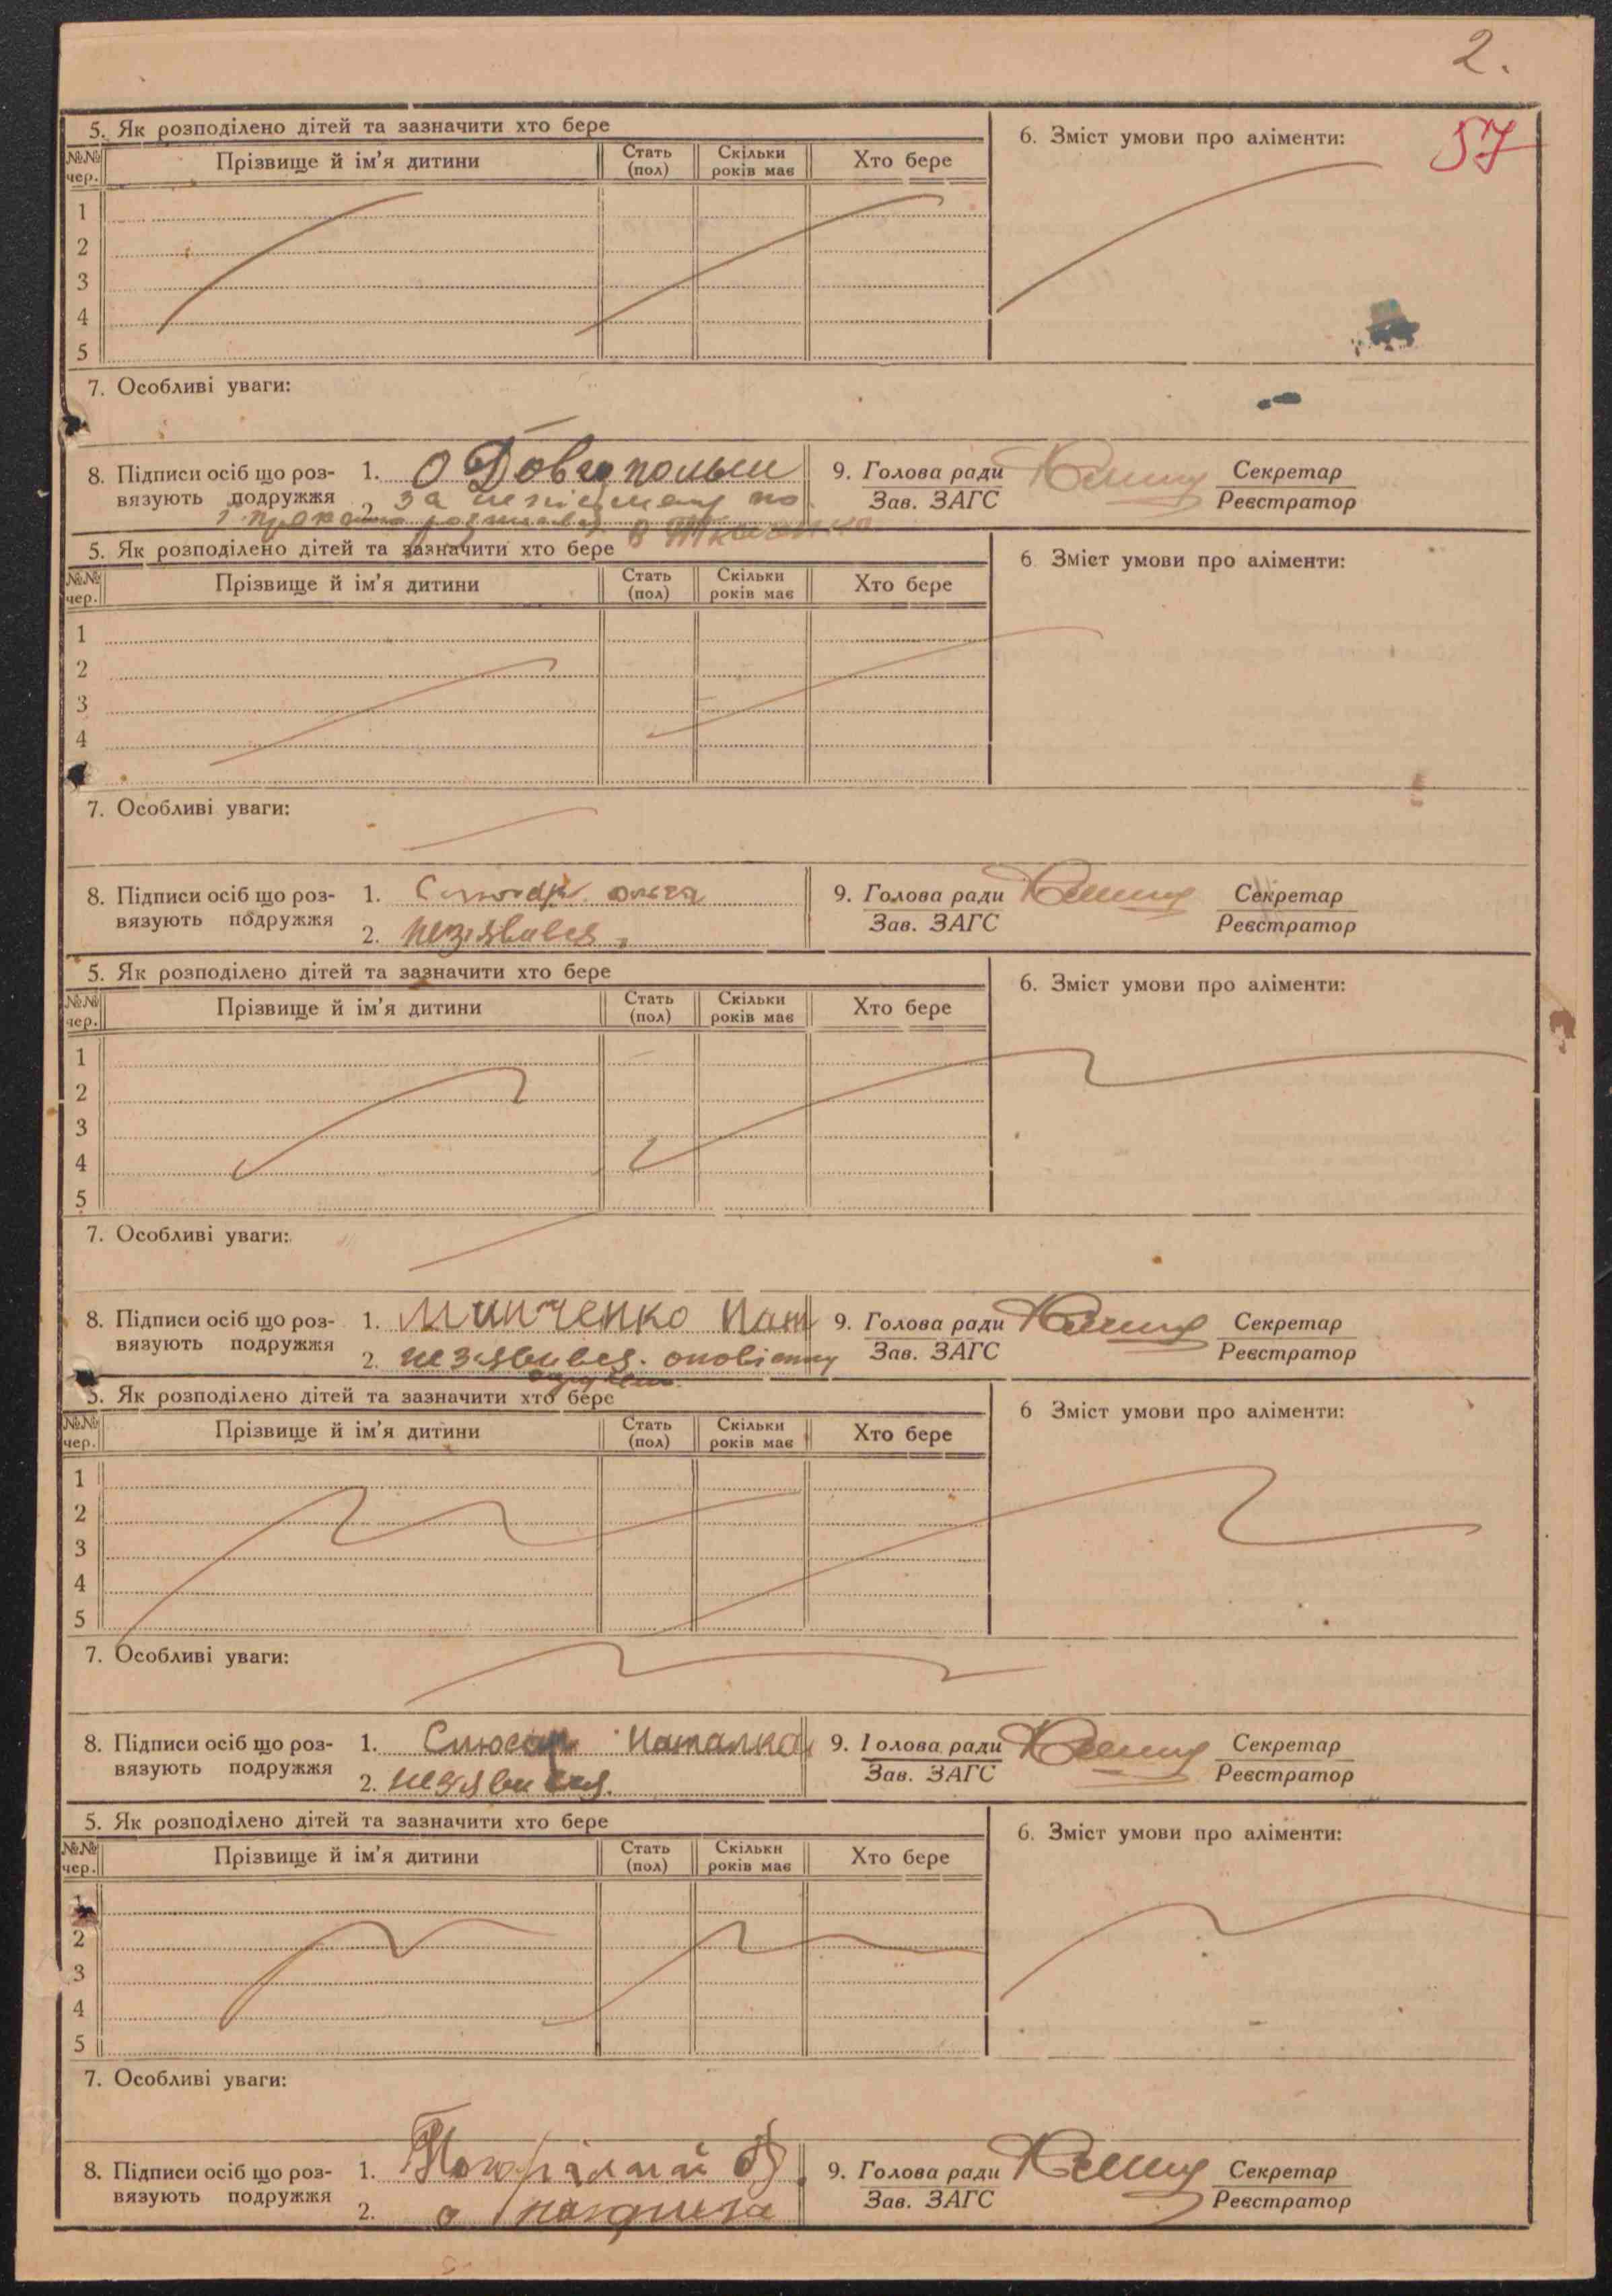 2.
57
5. Як розподілено дітей та зазначити хто бере
6. Зміст умови про аліменти:
№№ чер. Прізвище й ім'я дитини Стать (пол) Скільки років має Хто бере
1
2
3
4
5
7. Особливі уваги:
8. Підписи осіб що роз- 1. О Довгополий 9. Голова ради Секретар
вязують подружжя 2. за Зав. ЗАГС Реєстратор
В Ткаченко
5. Як розподілено дітей та зазначити хто бере
6 Зміст умови про аліменти:
№№ чер. Прізвище й ім'я дитини Стать (пол) Скільки років має Хто бере
1
2
3
4
7. Особливі уваги:
8. Підписи осіб що роз- 1. ольга 9. Голова ради Секретар
вязують подружжя 2. незявився. Зав. ЗАГС Реєстратор
5. Як розподілено дітей та зазначити хто бере
6. Зміст умови про аліменти:
№№ чер. Прізвище й ім'я дитини Стать (пол) Скільки років має Хто бере
1
2
3
4
5
7. Особливі уваги:
8. Підписи осіб що роз- 1. Минченко Нат 9. Голова ради Секретар
вязують подружжя 2. незявився. Зав. ЗАГС Реєстратор
5. Як розподілено дітей та зазначити хто бере
6 Зміст умови про аліменти:
№№ чер. Прізвище й ім'я дитини Стать (пол) Скільки років має Хто бере
1
2
3
4
5
7. Особливі уваги:
8. Підписи осіб що роз- 1. Слюсар Наталка 9. Голова ради Секретар
вязують подружжя 2. незявився. Зав. ЗАГС Реєстратор
5. Як розподілено дітей та зазначити хто бере
6. Зміст умови про аліменти:
№№ чер. Прізвище й ім'я дитини Стать (пол) Скільки років має Хто бере
1
2
3
4
5
7. Особливі уваги:
8. Підписи осіб що роз- 1. 9. Голова ради Секретар
вязують подружжя 2. Зав. ЗАГС Реєстратор